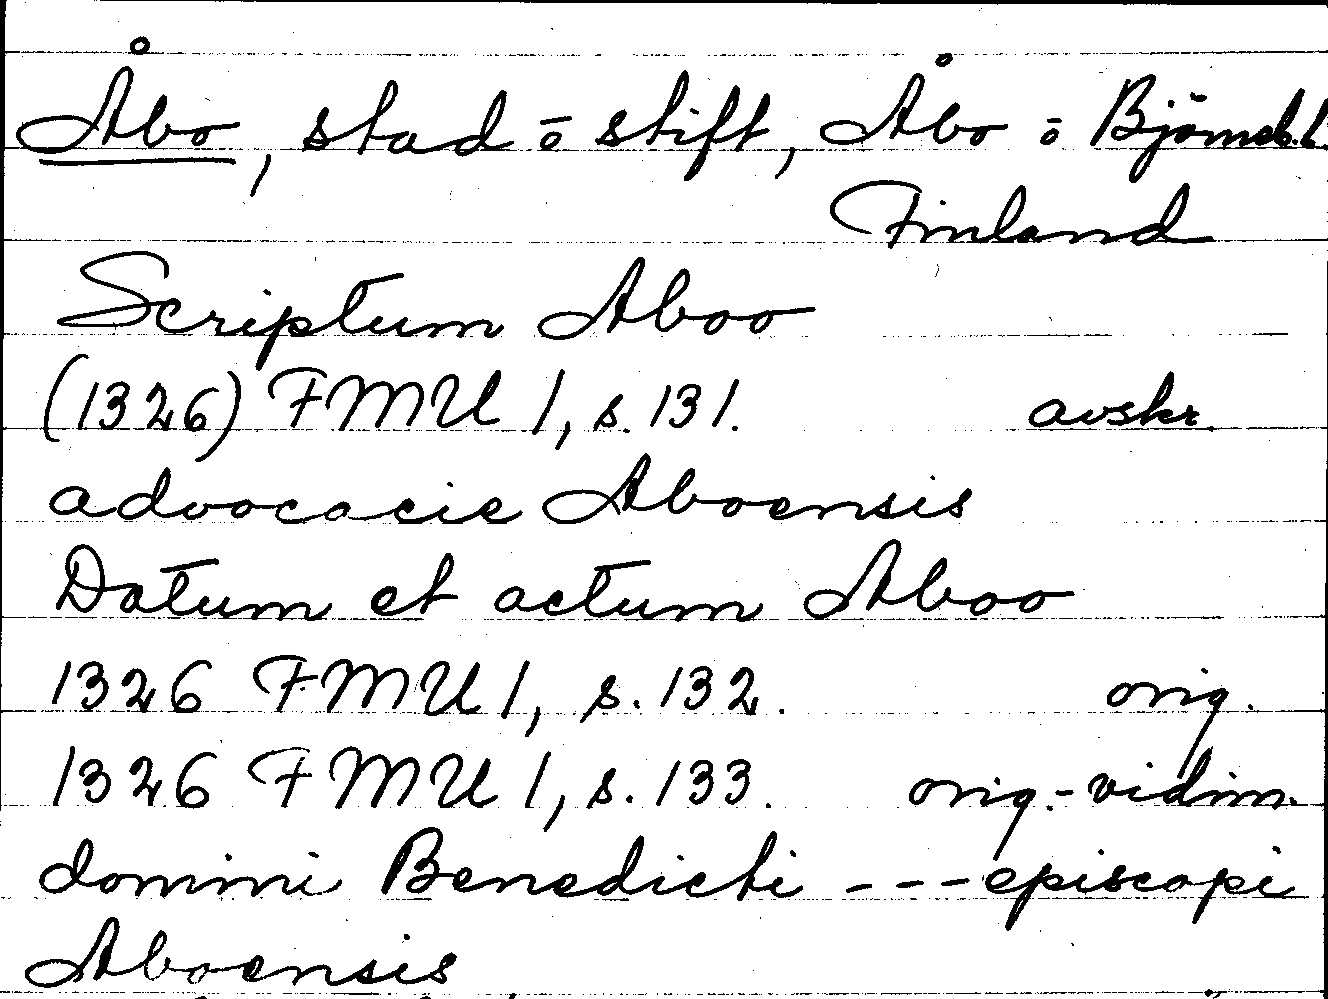 Åbo, stad o stift, Åbo o Björneb. l.
Finland
Scriptum Aboo
(1326) FMU 1, s. 131. avskr.
advocacie Aboensis
Datum et actum Aboo
1326 FMU 1, s. 132. orig.
1326 FMU 1, s. 133. orig.-vidim.
domini Benedicti --- episcopi
Aboensis